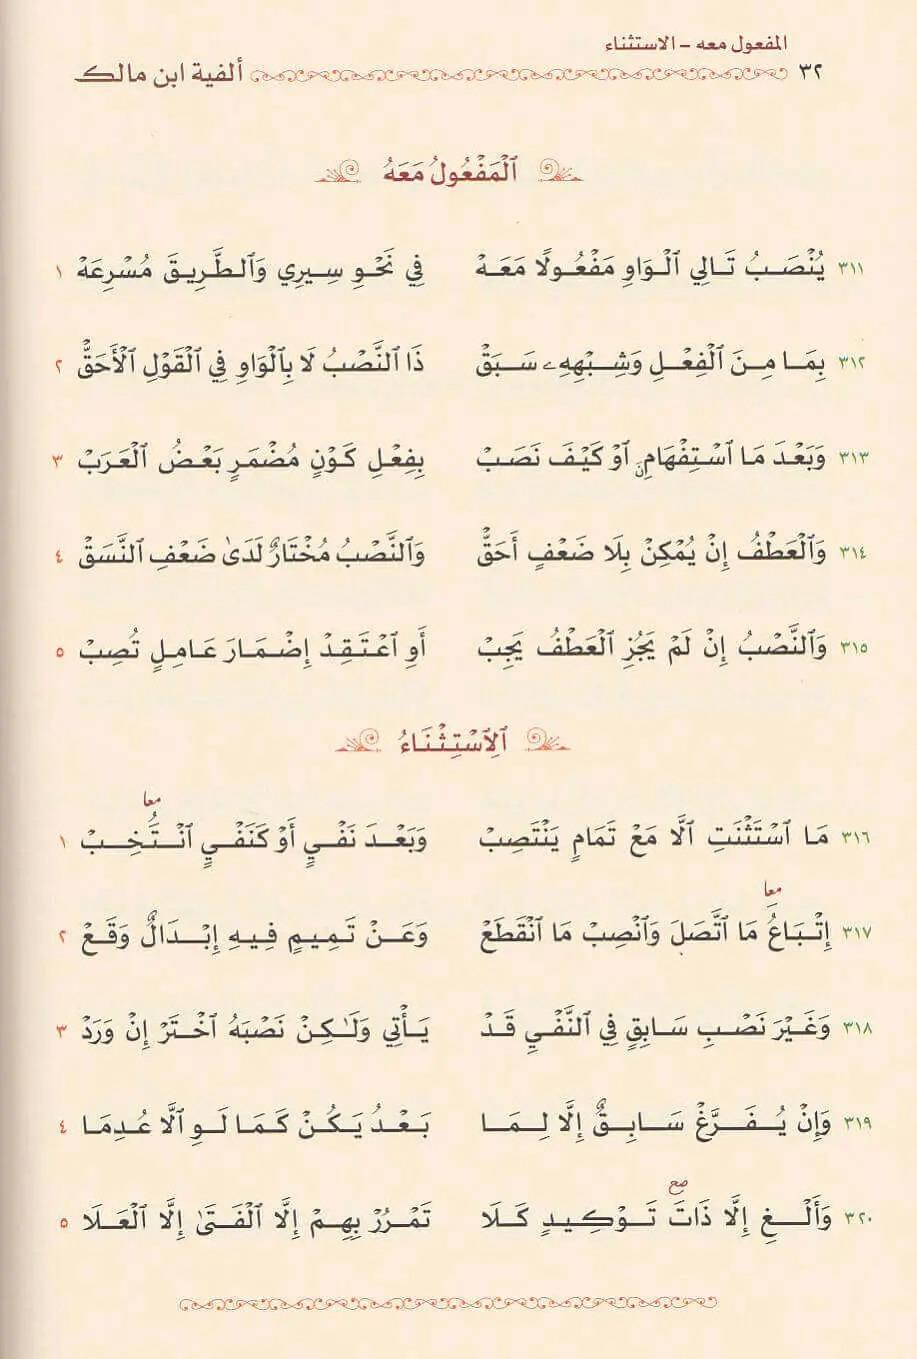 المفعول معه - الاستثناء
٣٢ ألفية ابن مالك
ٱلْمَفْعُولُ مَعَهُ
٣١١ يُنْصَبُ تَالِي ٱلْوَاوِ مَفْعُولًا مَعَهْ فِي نَحْوِ سِيرِي وَٱلطَّرِيقَ مُسْرِعَهْ ١
٣١٢ بِمَا مِنَ ٱلْفِعْلِ وَشِبْهِهِۦ سَبَقْ ذَا ٱلنَّصْبُ لَا بِٱلْوَاوِ فِي ٱلْقَوْلِ ٱلْأَحَقّْ ٢
٣١٣ وَبَعْدَ مَا ٱسْتِفْهَامٍ ٱوْ كَيْفَ نَصَبْ بِفِعْلِ كَوْنٍ مُضْمَرٍ بَعْضُ ٱلْعَرَبْ ٣
٣١٤ وَٱلْعَطْفُ إِنْ يُمْكِنْ بِلَا ضَعْفٍ أَحَقّْ وَٱلنَّصْبُ مُخْتَارٌ لَدَىٰ ضَعْفِ ٱلنَّسَقْ ٤
٣١٥ وَٱلنَّصْبُ إِنْ لَمْ يَجُزِ ٱلْعَطْفُ يَجِبْ أَوِ ٱعْتَقِدْ إِضْمَارَ عَامِلٍ تُصِبْ ٥
ٱلِٱسْتِثْنَاءُ
معا
٣١٦ مَا ٱسْتَثْنَتِ ٱلَّا مَعْ تَمَامٍ يَنْتَصِبْ وَبَعْدَ نَفْيٍ أَوْ كَنَفْيٍ ٱنْتُخِبْ ١
معا
٣١٧ إِتْبَاعُ مَا ٱتَّصَلَ وَٱنْصِبْ مَا ٱنْقَطَعْ وَعَنْ تَمِيمٍ فِيهِ إِبْدَالٌ وَقَعْ ٢
٣١٨ وَغَيْرَ نَصْبِ سَابِقٍ فِي ٱلنَّفْيِ قَدْ يَأْتِي وَلَـٰكِنْ نَصْبَهُ ٱخْتَرْ إِنْ وَرَدْ ٣
٣١٩ وَإِنْ يُفَرَّغْ سَابِقٌ إِلَّا لِمَا بَعْدُ يَكُنْ كَمَا لَوِ ٱلَّا عُدِمَا ٤
صح
٣٢٠ وَأَلْغِ إِلَّا ذَاتَ تَوْكِيدٍ كَلَا تَمْرُرْ بِهِمْ إِلَّا ٱلْفَتَىٰ إِلَّا ٱلْعَلَا ٥